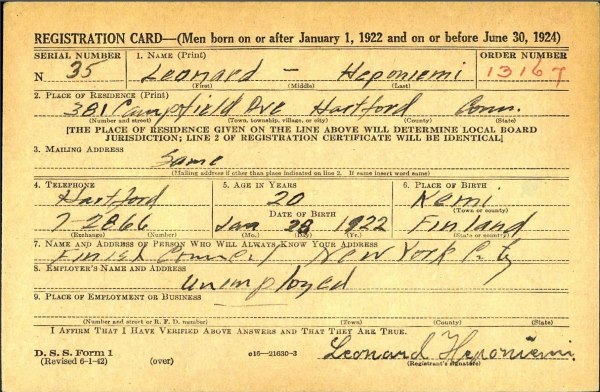 REGISTRATION CARD—(Men born on or after January 1, 1922 and on or before June 30, 1924)
SERIAL NUMBER 1. NAME (Print) ORDER NUMBER
N 35 Leonard — Heponiemi 13167
(First) (Middle) (Last)
2. PLACE OF RESIDENCE (Print)
381 Campfield Ave Hartford Conn.
(Number and street) (Town, township, village, or city) (County) (State)
[THE PLACE OF RESIDENCE GIVEN ON THE LINE ABOVE WILL DETERMINE LOCAL BOARD
JURISDICTION; LINE 2 OF REGISTRATION CERTIFICATE WILL BE IDENTICAL]
3. MAILING ADDRESS
Same
(Mailing address if other than place indicated on line 2. If same insert word same)
4. TELEPHONE 5. AGE IN YEARS 6. PLACE OF BIRTH
Hartford 20 Kemi
DATE OF BIRTH (Town or county)
7-2866 Jan 28 1922 Finland
(Exchange) (Number) (Mo.) (Day) (Yr.) (State or country)
7. NAME AND ADDRESS OF PERSON WHO WILL ALWAYS KNOW YOUR ADDRESS
New York City
8. EMPLOYER'S NAME AND ADDRESS
Unemployed
9. PLACE OF EMPLOYMENT OR BUSINESS
(Number and street or R. F. D. number) (Town) (County) (State)
I AFFIRM THAT I HAVE VERIFIED ABOVE ANSWERS AND THAT THEY ARE TRUE.
D. S. S. Form 1
(Revised 6-1-42) (over) c16—21630-3 Leonard Heponiemi
(Registrant's signature)